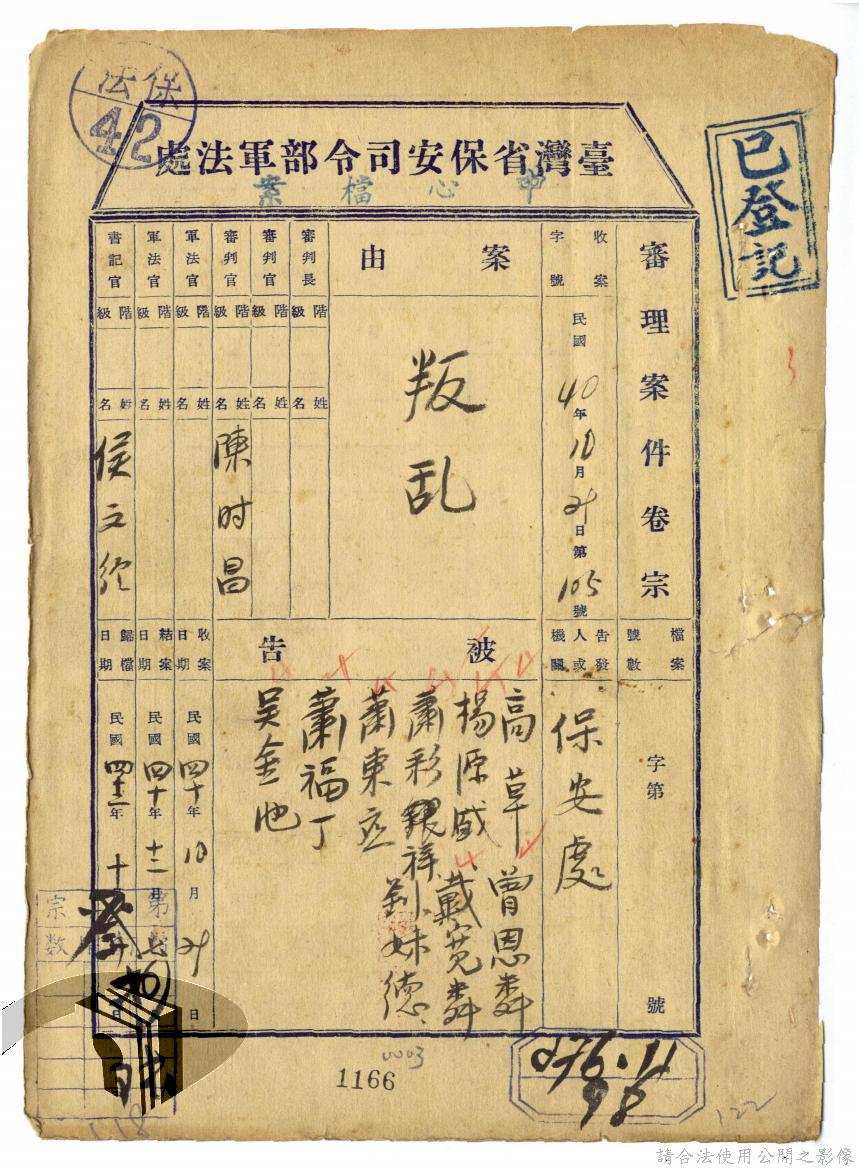 保法
42
臺灣省保安司令部軍法處
中心檔案
已登記
審理案件卷宗
檔案號數
字第 號
收案字號
民國40年10月21日第105號
告發人或機關
保安處
案由
叛乱
審判長
階級
姓名
審判官
階級
姓名
審判官
階級
姓名
陳时昌
軍法官
階級
姓名
軍法官
階級
姓名
書記官
階級
姓名
侯文
被告
高草
曾恩
楊源盛
戴寬
蕭彩祥
劉妹德
蕭東
蕭福丁
吳金
收案日期
民國四十年10月21日
結案日期
民國四十年十二月七日
歸檔日期
民國 年十 月 日
登
第 宗
数
0003
1166
276.11
98
122
118
請合法使用公開之影像